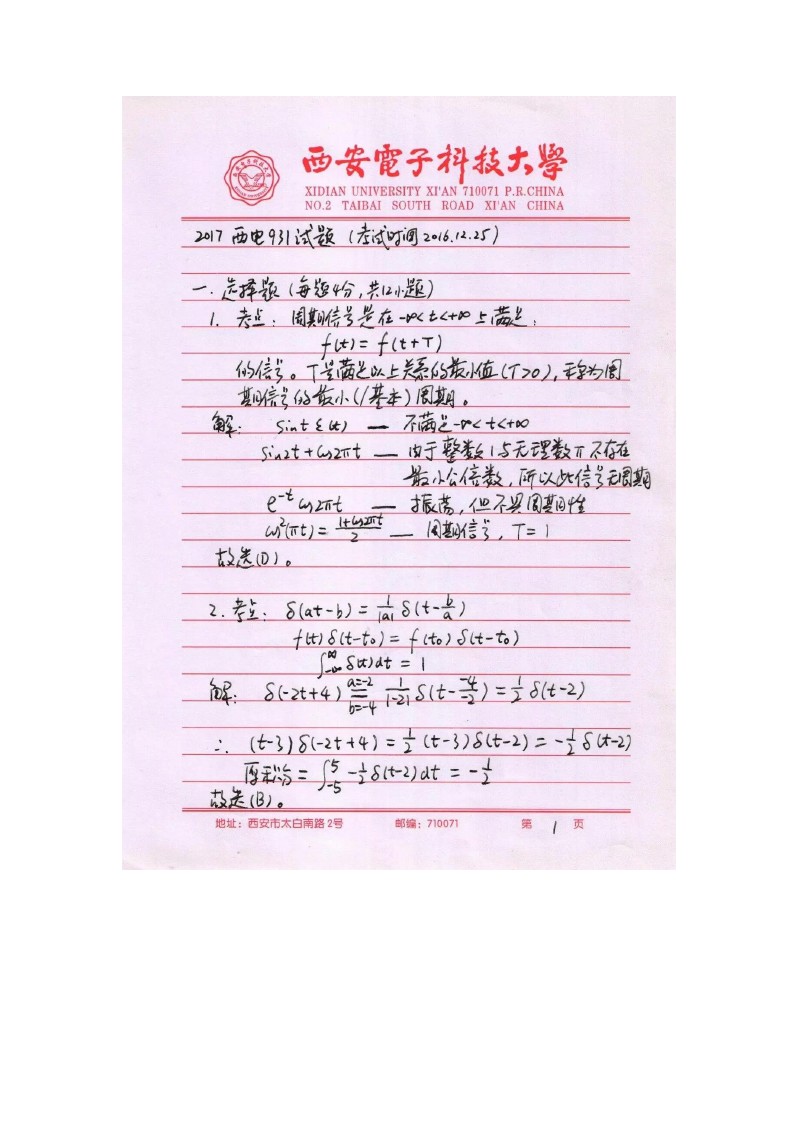 西安電子科技大學
XIDIAN UNIVERSITY XI'AN 710071 P.R.CHINA
NO.2 TAIBAI SOUTH ROAD XI'AN CHINA
2017 西电931试题 (考试时间2016.12.25)
一. 选择题 (每题4分,共12小题)
1. 考点: 周期信号是在 -∞<t<+∞ 上满足:
f(t) = f(t+T)
的信号。T是满足以上关系的最小值(T>0), 称为周
期信号的最小(/基本)周期。
解: sint ε(t) — 不满足 -∞<t<+∞
sin2t + cos2πt — 由于整数1与无理数π不存在
最小公倍数, 所以此信号无周期
e^{-t} cos2πt — 振荡, 但不具周期性
cos²(πt) = \frac{1+cos2πt}{2} — 周期信号, T=1
故选(D)。
2. 考点: δ(at-b) = \frac{1}{|a|} δ(t-\frac{b}{a})
f(t) δ(t-t₀) = f(t₀) δ(t-t₀)
∫_{-∞}^{∞} δ(t)dt = 1
解: δ(-2t+4) \overset{a=-2}{\underset{b=-4}{=}} \frac{1}{|-2|} δ(t-\frac{-4}{-2}) = \frac{1}{2} δ(t-2)
∴ (t-3) δ(-2t+4) = \frac{1}{2} (t-3) δ(t-2) = -\frac{1}{2} δ(t-2)
原积分 = ∫_{-5}^{5} -\frac{1}{2} δ(t-2) dt = -\frac{1}{2}
故选(B)。
地址: 西安市太白南路2号 邮编: 710071 第 1 页